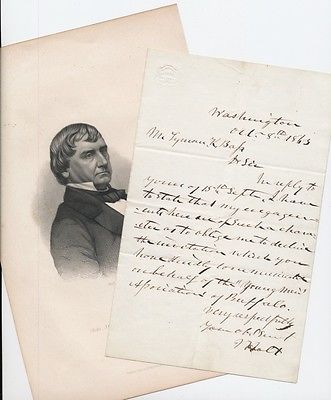 Washington
Oct. 8th 1863
Mr Lyman K Bass
Dr Sir
In reply to
yours of 15th Septr, I have
to state that my engage-
ments here are of such a charac-
ter as to oblige me to decline
the invitation which you
have kindly communicated
on behalf of the "Young Men's
Association of Buffalo.
Very respectfully
Your ob. Servt
J Holt